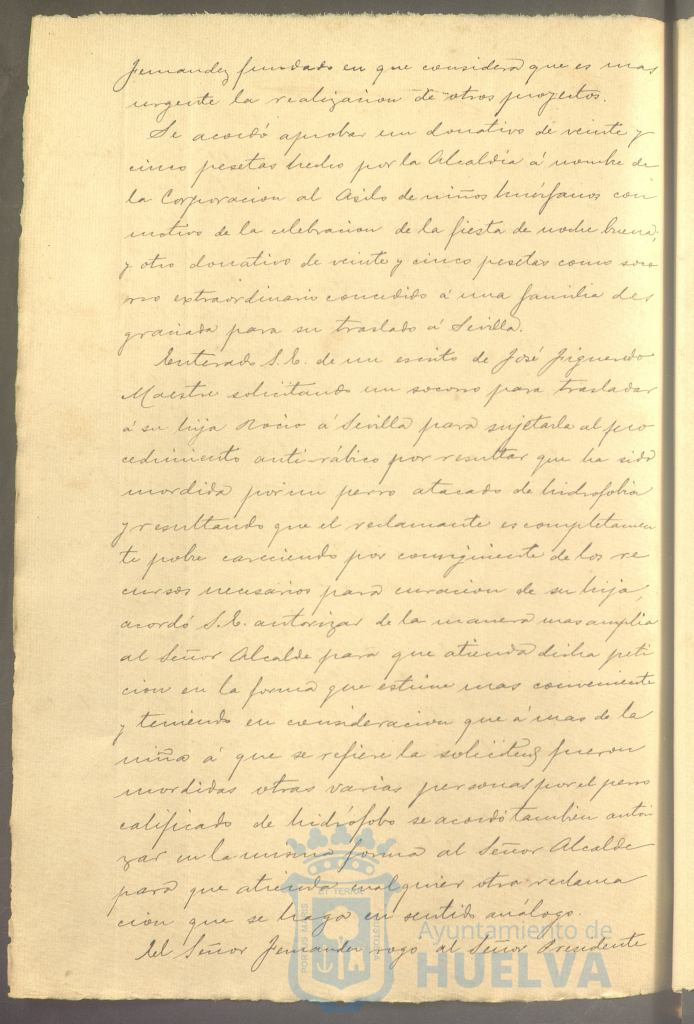 Fernandez fundado en que considera que es mas
urgente la realizacion de otros proyectos.
Se acordó aprobar un donativo de veinte y
cinco pesetas hecho por la Alcaldia á nombre de
la Corporacion al Asilo de niños huérfanos con
motivo de la celebracion de la fiesta de noche buena,
y otro donativo de veinte y cinco pesetas como soco
rro extraordinario concedido á una familia des
graciada para su traslado á Sevilla.
Enterado S.E. de un escrito de José Figueredo
Maestre solicitando un socorro para trasladar
á su hija Rocio á Sevilla para sujetarla al pro
cedimiento anti-rábico por resultar que ha sido
mordida por un perro atacado de hidrofobia
y resultando que el reclamante es completamen
te pobre careciendo por consiguiente de los re
cursos necesarios para curacion de su hija,
acordó S.E. autorizar de la manera mas amplia
al Señor Alcalde para que atienda dicha peti
cion en la forma que estime mas conveniente
y teniendo en consideracion que á mas de la
niña á que se refiere la solicitud fueron
mordidas otras varias personas por el perro
calificado de hidrófobo se acordó tambien autori
zar en la misma forma al Señor Alcalde
para que atienda cualquier otra reclama
cion que se haga en sentido análogo.
El Señor Fernandez rogo al Señor Presidente
Ayuntamiento de
HUELVA